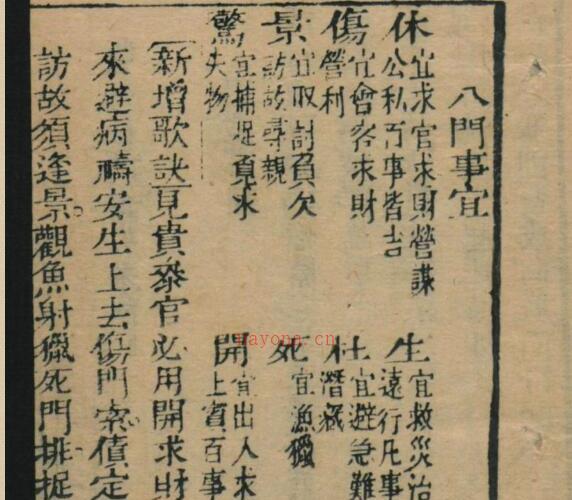 八門事宜
休
宜求官求財營謀
公私百事皆吉
生
宜救災治
遠行凡事
傷
宜會客求財
營利
杜
宜避急難
潛藏
景
宜取討負欠
訪故尋親
死
宜漁獵
驚
宜捕捉覓求
失物
開
宜出入求
上賓百事
新增歌訣見貴參官必用開求財
來避病禱安生上去傷門索債定
訪故須逢景觀魚射獵死門排捉
nayona.cn